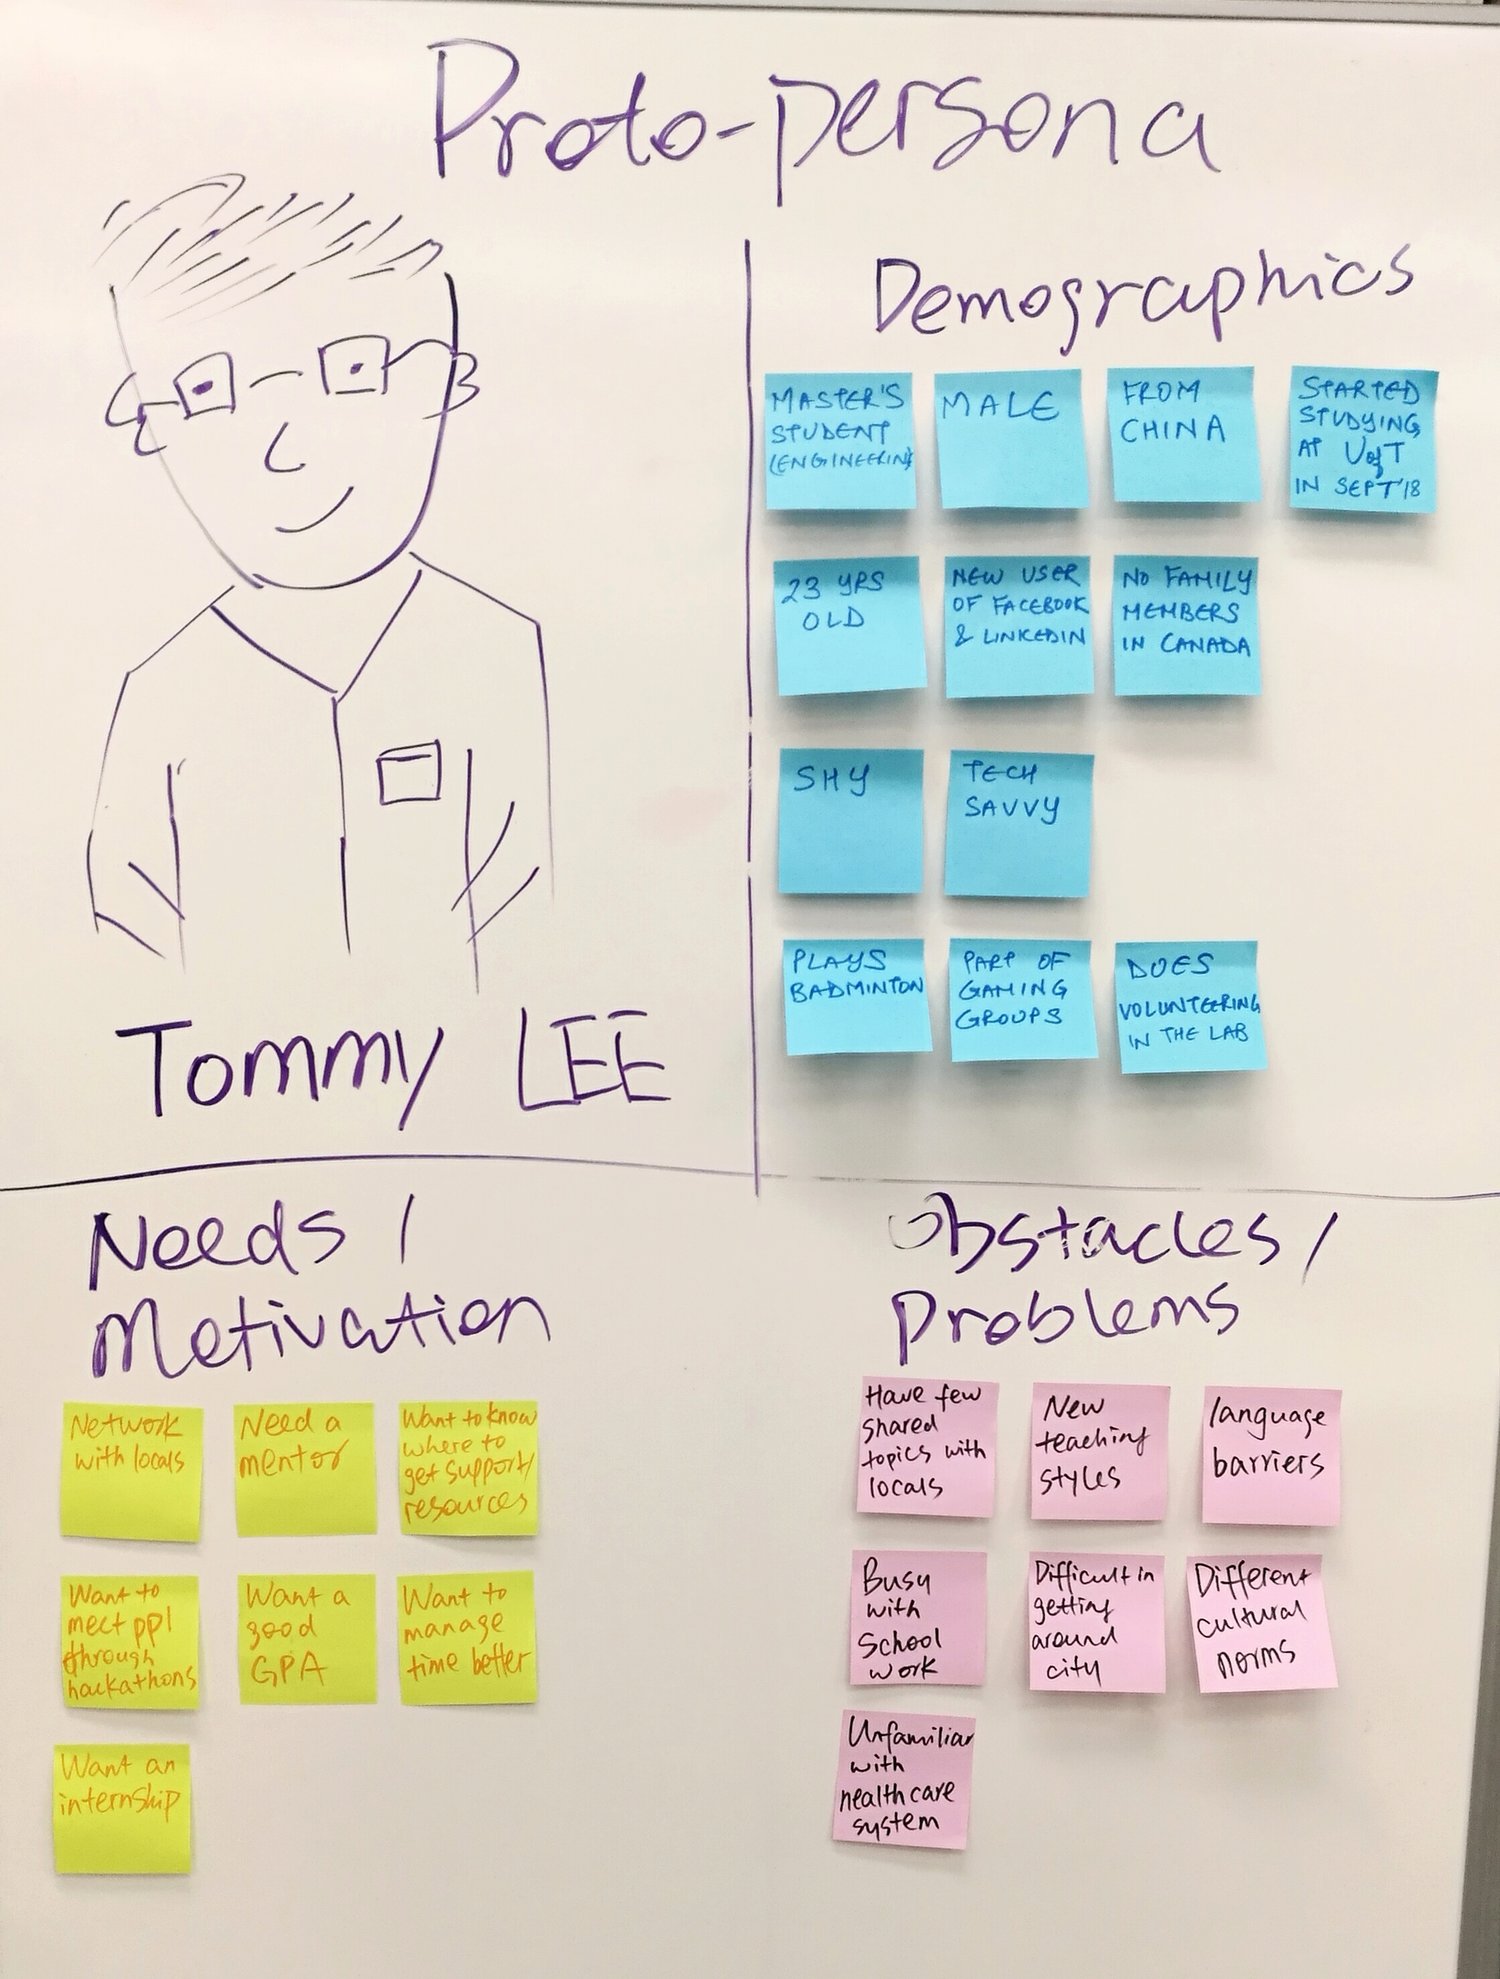 Proto-persona
Tommy LEE
Demographics
MASTER'S
STUDENT
(ENGINEERING
MALE
FROM
CHINA
STARTED
STUDYING
AT UofT
IN SEPT'18
23 YRS
OLD
NEW USER
OF FACEBOOK
& LINKEDIN
NO FAMILY
MEMBERS
IN CANADA
SHY
TECH
SAVVY
PLAYS
BADMINTON
PART OF
GAMING
GROUPS
DOES
VOLUNTEERING
IN THE LAB
Needs /
Motivation
Network
with locals
Need a
mentor
Want to know
where to
get support/
resources
Want to
meet ppl
through
hackathons
Want a
good
GPA
Want to
manage
time better
Want an
internship
Obstacles /
Problems
Have few
shared
topics with
locals
New
teaching
styles
language
barriers
Busy
with
school
work
Difficult in
getting
around
city
Different
cultural
norms
Unfamiliar
with
healthcare
system